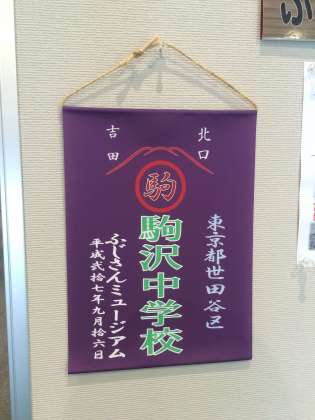 北口
吉田
駒
東京都世田谷区
駒沢中学校
ふじさんミュージアム
平成弐拾七年九月拾六日